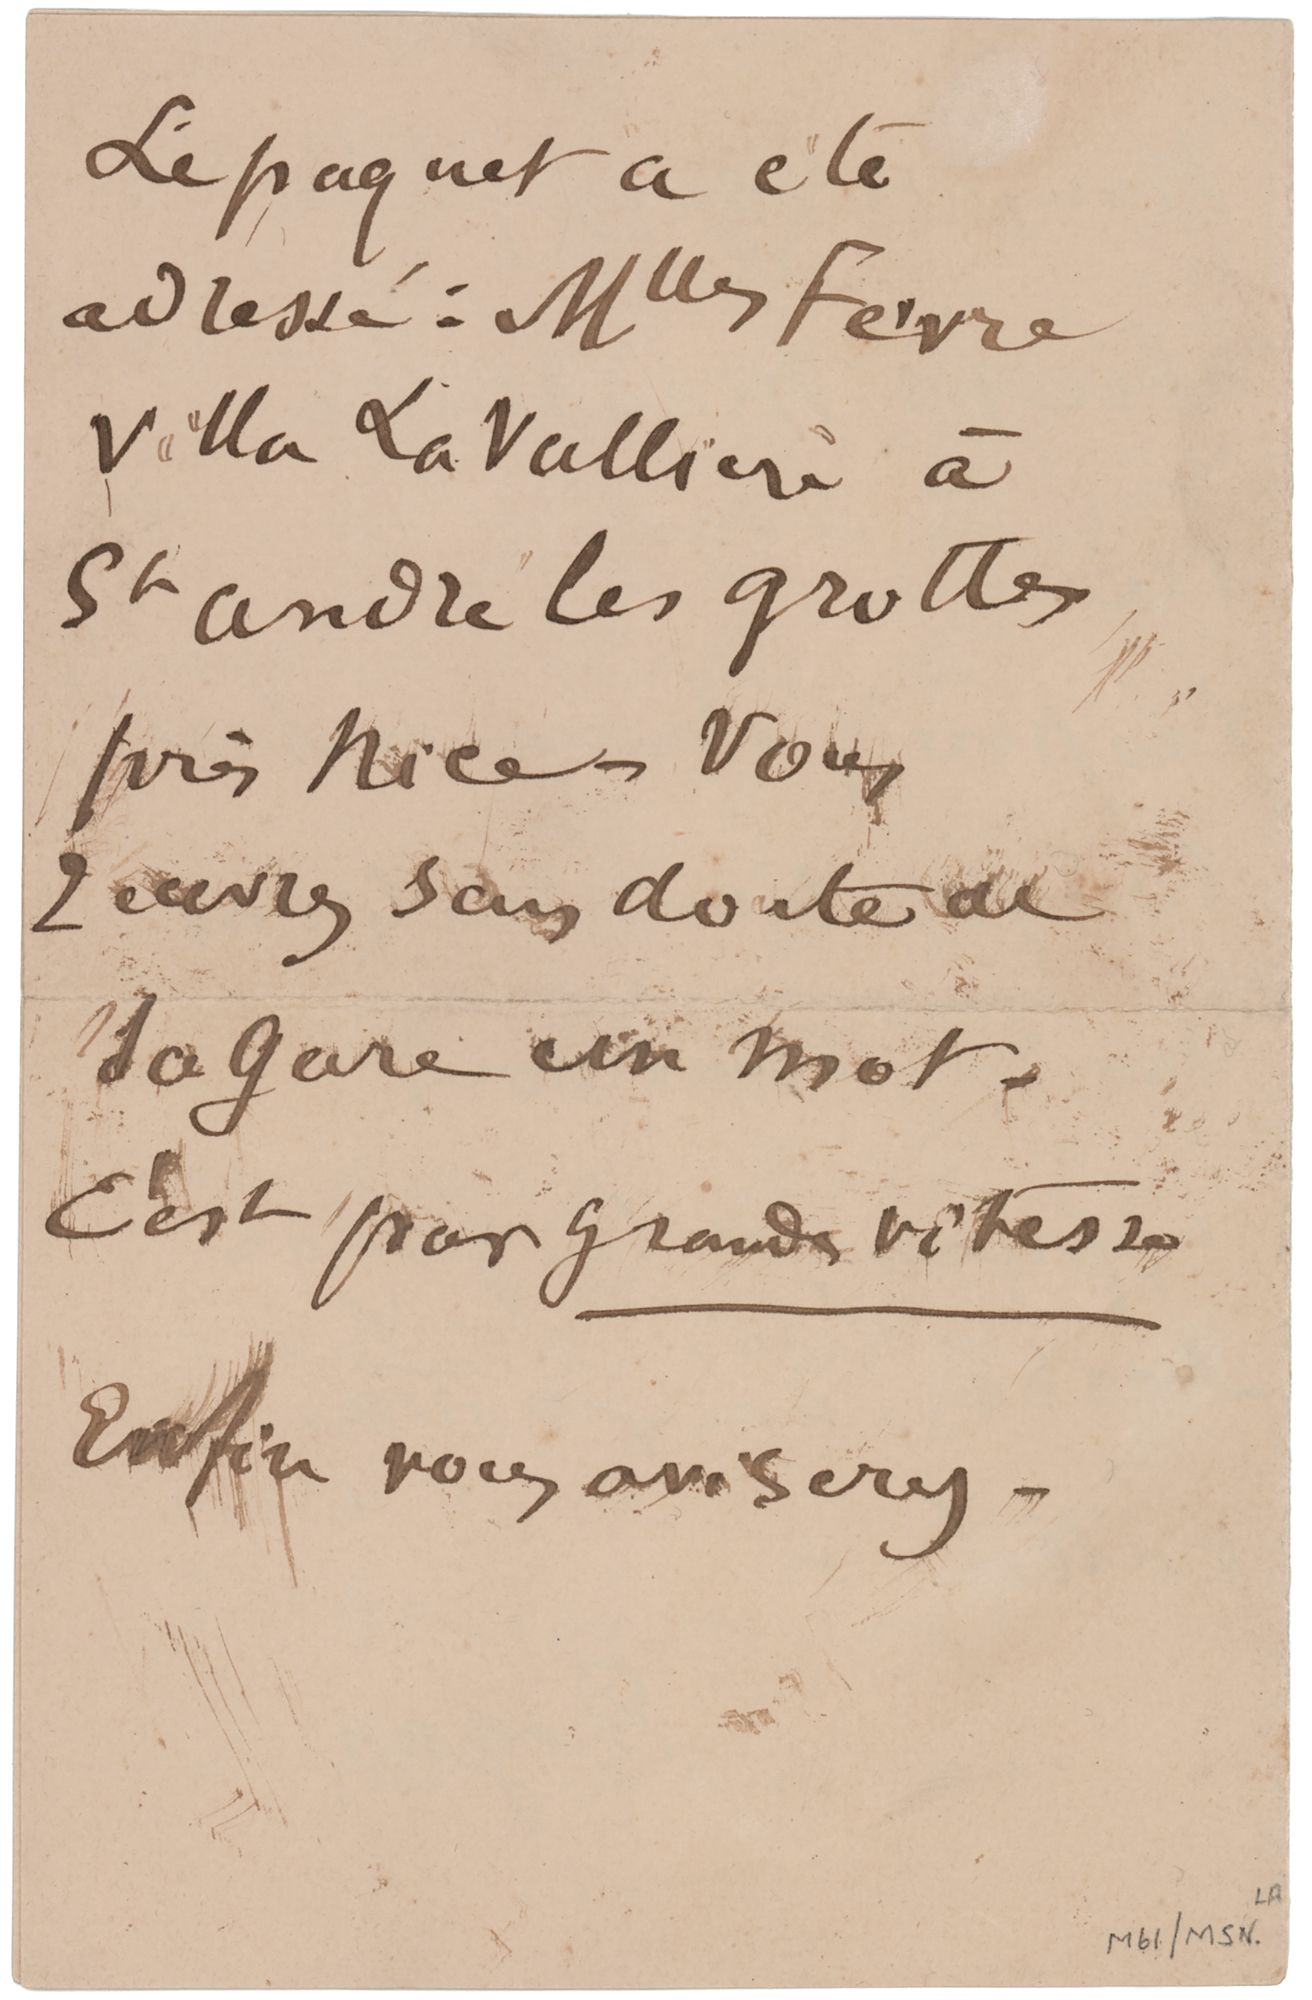 Le paquet a été
adressé : Mlles Fevre
Villa La Vallière à
St andré les grottes
près Nice - Vous
recevrez sans doute de
la gare un mot -
C'est par grande vitesse
Enfin vous aviserez -
LA
M61/MSN.